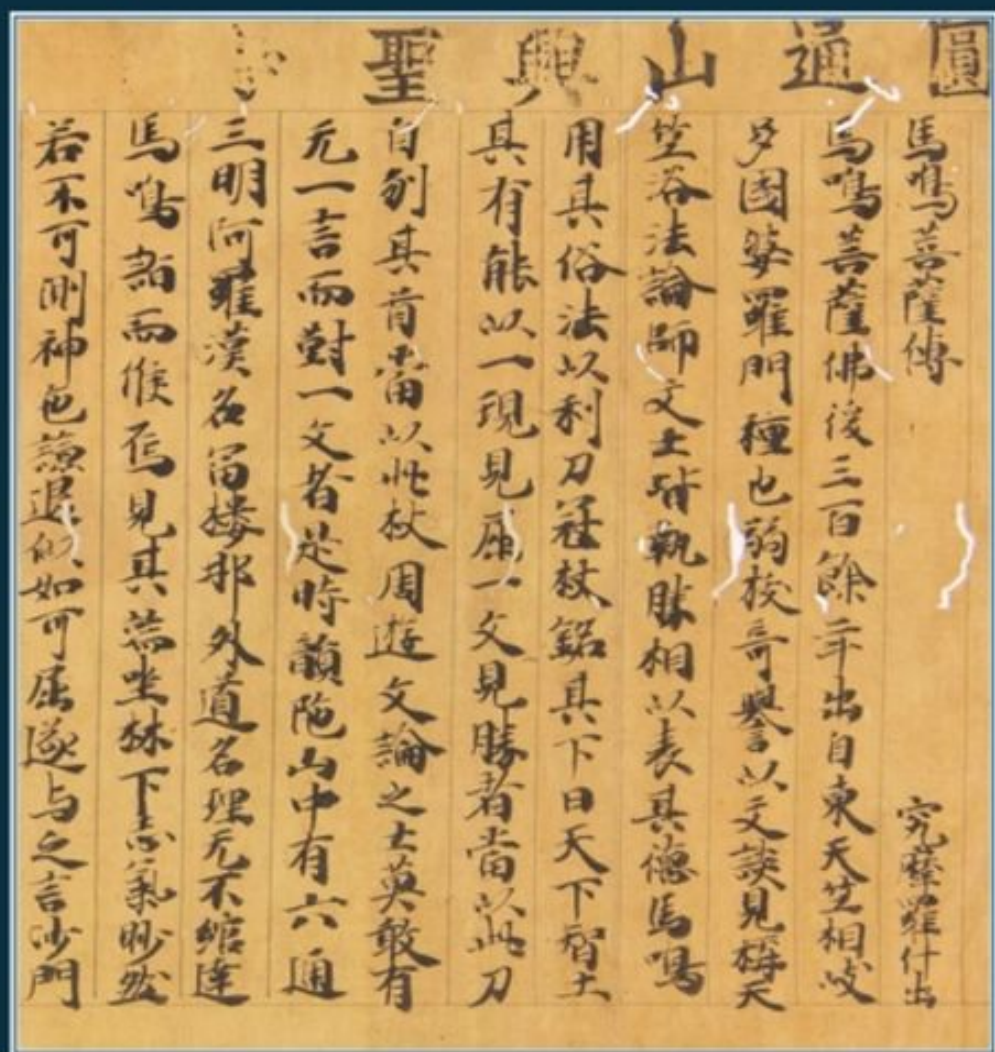 圓通山興聖
馬鳴菩薩傳 究摩羅什出
馬鳴菩薩佛後三百餘年出自東天竺相岐
多國婆羅門種也弱挍奇譽以文談見稱天
竺俗法論師文士皆執勝相以表其德馬鳴
用其俗法以利刀冠杖銘其下曰天下智士
其有能以一現見屈一文見勝者當以此刀
自刎其首常以此杖周遊文論之士莫敢有
无一言而對一文者是時韻陁山中有六通
三明阿羅漢名富樓那外道名理无不綰達
馬鳴詣而候焉見其端坐林下志氣眇然
若不可測神色謙退似如可屈遂与之言沙門